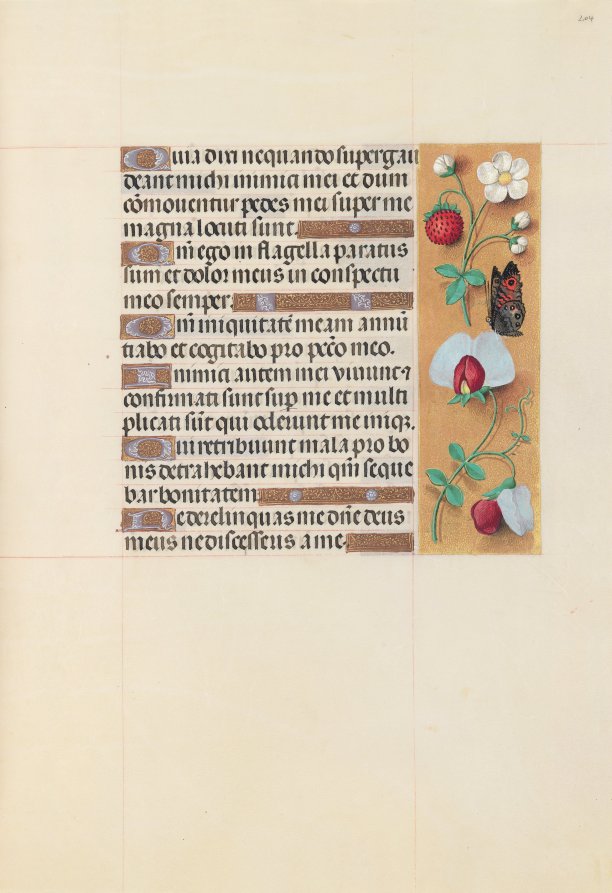 204
Quia dixi nequando supergau
deant michi inimici mei et dum
cōmoventur pedes mei super me
magna locuti sunt.
Qm̄ ego in flagella paratus
sum et dolor meus in conspectu
meo semper.
Qm̄ iniquitatē meam annū
tiabo et cogitabo pro pecc̄o meo.
Inimici autem mei vivunt ⁊
confirmati sunt sup̄ me et multi
plicati sūt qui oderunt me iniq̄.
Qui retribuunt mala pro bo
nis detrahebant michi qm̄ seque
bar bonitatem.
Ne derelinquas me dn̄e deus
meus ne discesseris a me.